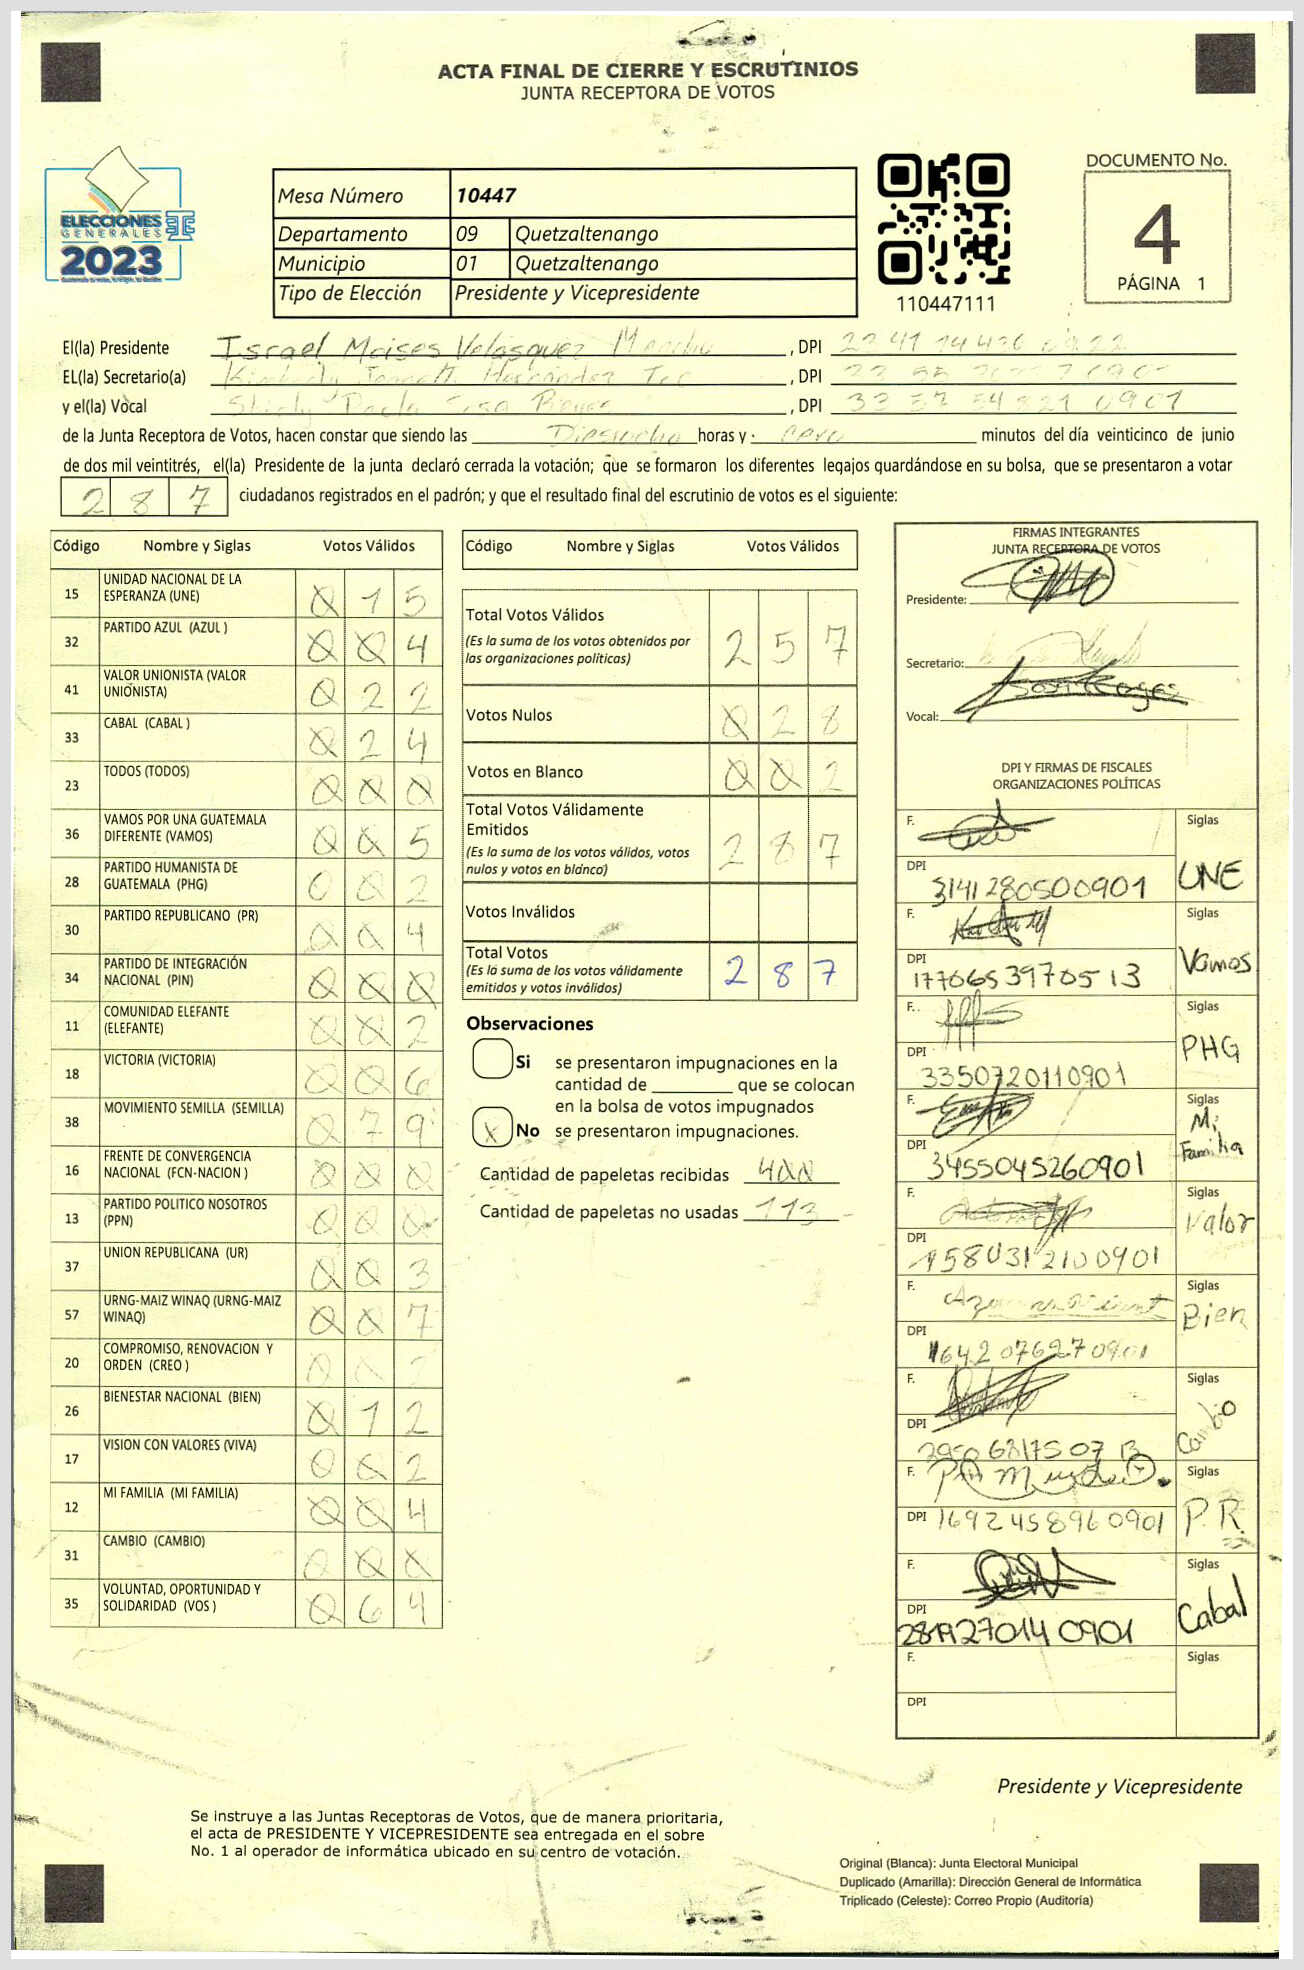 ACTA FINAL DE CIERRE Y ESCRUTINIOS
JUNTA RECEPTORA DE VOTOS
ELECCIONES
GENERALES
2023
Mesa Número 10447
Departamento 09 Quetzaltenango
Municipio 01 Quetzaltenango
Tipo de Elección Presidente y Vicepresidente
110447111
DOCUMENTO No.
4
PÁGINA 1
El(la) Presidente Israel Moises Velasquez , DPI
EL(la) Secretario(a) , DPI
y el(la) Vocal , DPI 3357 54821 0901
de la Junta Receptora de Votos, hacen constar que siendo las horas y cero minutos del día veinticinco de junio
de dos mil veintitrés, el(la) Presidente de la junta declaró cerrada la votación; que se formaron los diferentes legajos guardándose en su bolsa, que se presentaron a votar
287 ciudadanos registrados en el padrón; y que el resultado final del escrutinio de votos es el siguiente:
Código Nombre y Siglas Votos Válidos
15 UNIDAD NACIONAL DE LA ESPERANZA (UNE) 0 1 5
32 PARTIDO AZUL (AZUL ) 0 0 4
41 VALOR UNIONISTA (VALOR UNIONISTA) 0 2 2
33 CABAL (CABAL ) 0 2 4
23 TODOS (TODOS) 0 0 0
36 VAMOS POR UNA GUATEMALA DIFERENTE (VAMOS) 0 0 5
28 PARTIDO HUMANISTA DE GUATEMALA (PHG) 0 0 2
30 PARTIDO REPUBLICANO (PR) 0 0 4
34 PARTIDO DE INTEGRACIÓN NACIONAL (PIN) 0 0 0
11 COMUNIDAD ELEFANTE (ELEFANTE) 0 0 2
18 VICTORIA (VICTORIA) 0 0 6
38 MOVIMIENTO SEMILLA (SEMILLA) 0 7 9
16 FRENTE DE CONVERGENCIA NACIONAL (FCN-NACION ) 0 0 0
13 PARTIDO POLITICO NOSOTROS (PPN) 0 0 0
37 UNION REPUBLICANA (UR) 0 0 3
57 URNG-MAIZ WINAQ (URNG-MAIZ WINAQ) 0 0 7
20 COMPROMISO, RENOVACION Y ORDEN (CREO ) 0 0 2
26 BIENESTAR NACIONAL (BIEN) 0 1 2
17 VISION CON VALORES (VIVA) 0 0 2
12 MI FAMILIA (MI FAMILIA) 0 0 4
31 CAMBIO (CAMBIO) 0 0 0
35 VOLUNTAD, OPORTUNIDAD Y SOLIDARIDAD (VOS ) 0 6 4
Código Nombre y Siglas Votos Válidos
Total Votos Válidos 2 5 7
(Es la suma de los votos obtenidos por
las organizaciones políticas)
Votos Nulos 0 2 8
Votos en Blanco 0 0 2
Total Votos Válidamente
Emitidos 2 8 7
(Es la suma de los votos válidos, votos
nulos y votos en blanco)
Votos Inválidos
Total Votos 2 8 7
(Es la suma de los votos válidamente
emitidos y votos inválidos)
Observaciones
Si se presentaron impugnaciones en la
cantidad de ________ que se colocan
en la bolsa de votos impugnados
X No se presentaron impugnaciones.
Cantidad de papeletas recibidas 400
Cantidad de papeletas no usadas 113
FIRMAS INTEGRANTES
JUNTA RECEPTORA DE VOTOS
Presidente:
Secretario:
Vocal:
DPI Y FIRMAS DE FISCALES
ORGANIZACIONES POLÍTICAS
F. Siglas
DPI 3141280500901 UNE
F. Siglas
DPI 1770653970513 Vamos
F. Siglas
DPI 3350720110901 PHG
F. Siglas
DPI 3455045260901 Mi Familia
F. Siglas
DPI 1580312100901 Valor
F. Siglas
DPI 1642076270901 Bien
F. Siglas
DPI Cambio
F. Siglas
DPI 1692458960901 P.R.
F. Siglas
DPI Cabal
F. Siglas
DPI
Presidente y Vicepresidente
Se instruye a las Juntas Receptoras de Votos, que de manera prioritaria,
el acta de PRESIDENTE Y VICEPRESIDENTE sea entregada en el sobre
No. 1 al operador de informática ubicado en su centro de votación.
Original (Blanca): Junta Electoral Municipal
Duplicado (Amarilla): Dirección General de Informática
Triplicado (Celeste): Correo Propio (Auditoría)